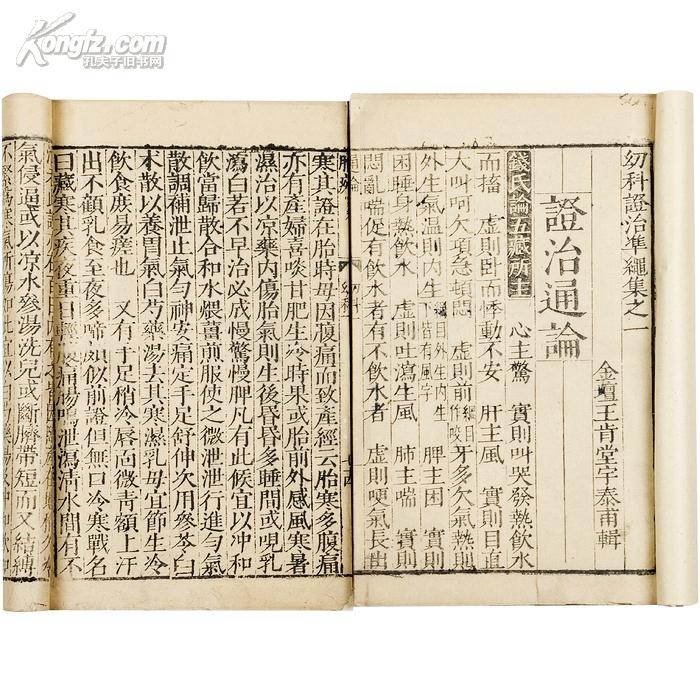 Kongfz.com
孔夫子旧书网
幼科證治準繩集之一
金壇王肯堂宇泰甫輯
證治通論
錢氏論五臟所主
心主驚 實則叫哭發熱飲水
而搐 虛則臥而悸動不安 肝主風 實則目直
大叫呵欠項急頓悶 虛則咬牙多欠氣熱則
外生氣溫則內生 脾主困 實則
困睡身熱飲水 虛則吐瀉生風 肺主喘 實則
悶亂喘促有飲水者有不飲水者 虛則哽氣長出
寒其證在胎時母因腹痛而致產經云胎寒多腹痛
亦有產婦喜啖甘肥生冷時果或胎前外感風寒暑
濕治以凉藥內傷胎氣則生後昏昏多睡間或哯乳
瀉白若不早治必成慢驚慢脾凡有此候宜以冲和
飲當歸散合和水煨薑煎服使之微泄泄行進勻氣
散調補泄止氣勻神安痛定手足舒伸次用參苓白
术散以養胃氣白芍藥湯去其寒濕乳母宜節生冷
飲食庶易瘥也 又有手足稍冷唇面微青額上汗
出不顧乳食至夜多啼頗似前證但無口冷寒戰名
曰臟寒其疾夜重日輕腹痛腸鳴泄瀉清水間有不
氣侵逼或以凉水參湯洗兒或斷臍帶短而又結縛